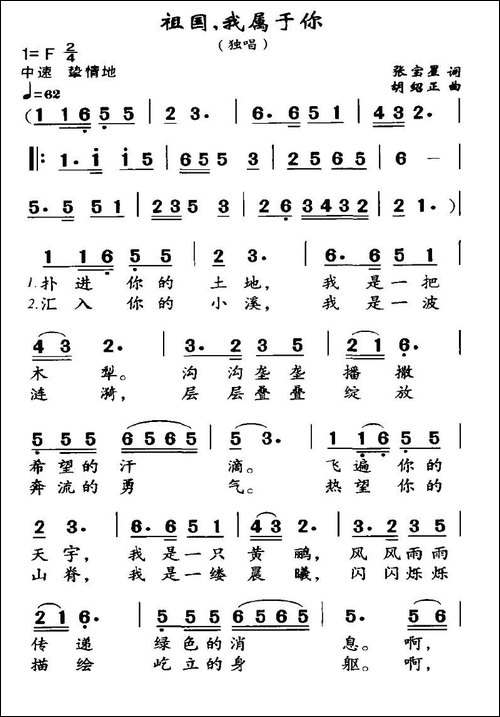 祖国,我属于你
(独唱)
1= F 2/4
中速 挚情地
♩=62
张宝星 词
胡绍正 曲
(1 1 6 5 5 | 2 3. | 3. 6 5 1 | 4 3 2. |
‖: 1. i i 5 | 6 5 5 3 | 2 5 6 5 | 6 – |
5. 5 5 1 | 2 3 5 3 | 2 6 3 4 3 2 | 2 1. ) |
1 1 6 5 5 | 2 3. | 6. 6 5 1 |
1.扑 进 你 的 土 地, 我 是 一 把
2.汇 入 你 的 小 溪, 我 是 一 波
4 3 2. | 3. 2 3 5 | 2 1 6. |
木 犁。 沟 沟 垄 垄 播 撒
涟 漪, 层 层 叠 叠 绽 放
5 5 5 6 5 6 5 | 5 3. | 1 1 6 5 5 |
希 望 的 汗 滴。 飞 遍 你 的
奔 流 的 勇 气。 热 望 你 的
2 3. | 6. 6 5 1 | 4 3 2. | 3. 2 3 5 |
天 宇, 我 是 一 只 黄 鹂, 风 风 雨 雨
山 脊, 我 是 一 缕 晨 曦, 闪 闪 烁 烁
2 1 6. | 5 5 5 6 5 6 5 | 5. 5 6 |
传 递 绿 色 的 消 息。 啊,
描 绘 屹 立 的 身 躯。 啊,